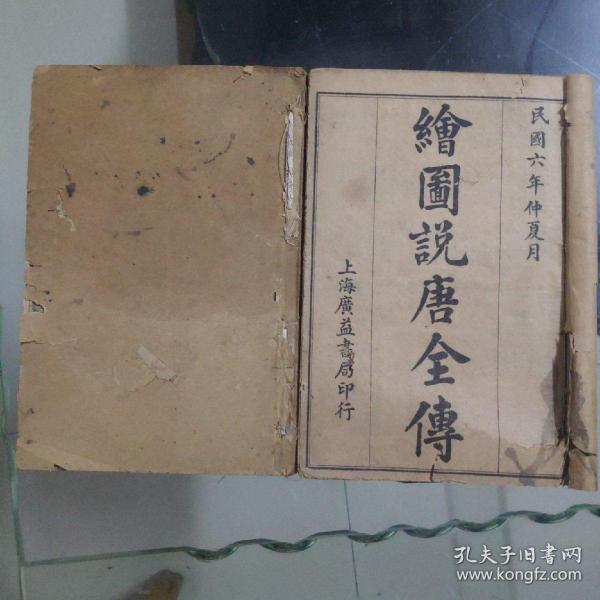 民國六年仲夏月
繪圖説唐全傳
上海廣益書局印行
孔夫子旧书网
www.kongfz.com